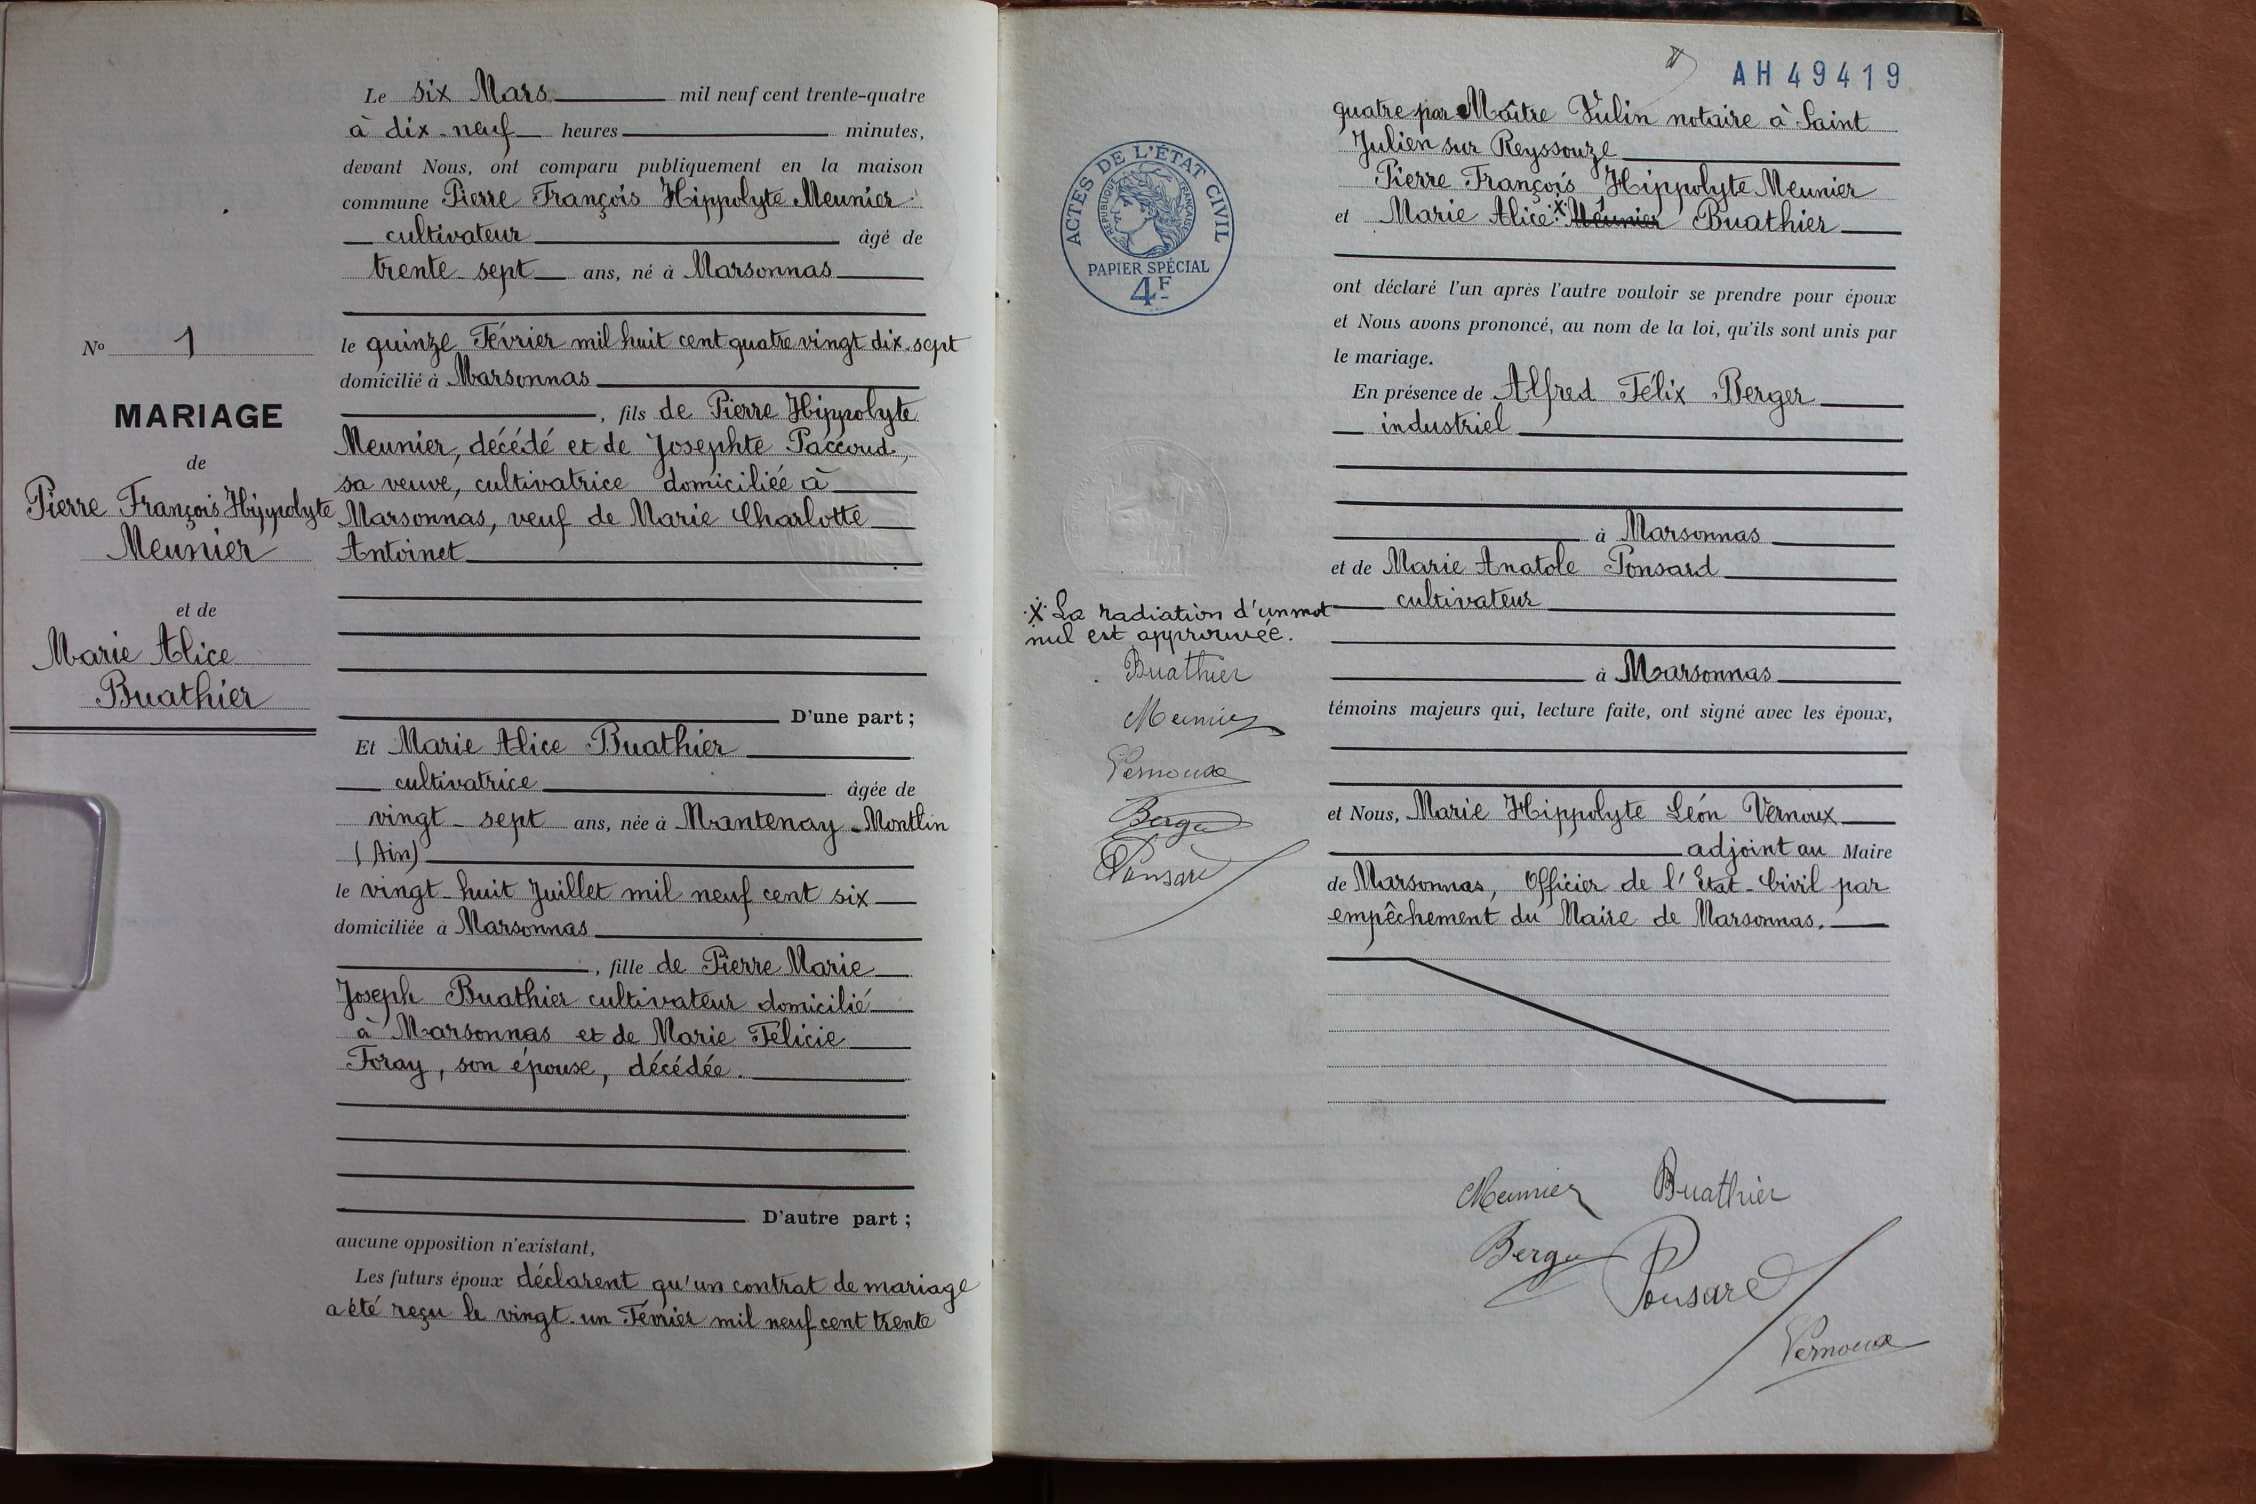 N° 1
MARIAGE
de
Pierre François Hippolyte
Meunier
et de
Marie Alice
Buathier
Le six Mars mil neuf cent trente-quatre
à dix-neuf heures minutes,
devant Nous, ont comparu publiquement en la maison
commune Pierre François Hippolyte Meunier
cultivateur âgé de
trente-sept ans, né à Marsonnas
le quinze Février mil huit cent quatre vingt dix-sept
domicilié à Marsonnas
, fils de Pierre Hippolyte
Meunier, décédé et de Josephte Paccoud,
sa veuve, cultivatrice domiciliée à
Marsonnas, veuf de Marie Charlotte
Antoinet
D'une part ;
Et Marie Alice Buathier
cultivatrice âgée de
vingt-sept ans, née à Mantenay-Montlin
(Ain)
le vingt-huit Juillet mil neuf cent six
domiciliée à Marsonnas
, fille de Pierre Marie
Joseph Buathier cultivateur domicilié
à Marsonnas et de Marie Félicie
Foray, son épouse, décédée.
D'autre part ;
aucune opposition n'existant,
Les futurs époux déclarent qu'un contrat de mariage
a été reçu le vingt-un Février mil neuf cent trente
AH 49419
ACTES DE L'ÉTAT CIVIL
RÉPUBLIQUE FRANÇAISE
PAPIER SPÉCIAL
4F
quatre par Maître Vulin notaire à Saint
Julien sur Reyssouze
Pierre François Hippolyte Meunier
et Marie Alice X Meunier Buathier
ont déclaré l'un après l'autre vouloir se prendre pour époux
et Nous avons prononcé, au nom de la loi, qu'ils sont unis par
le mariage.
En présence de Alfred Félix Berger
industriel
à Marsonnas
et de Marie Anatole Ponsard
cultivateur
à Marsonnas
témoins majeurs qui, lecture faite, ont signé avec les époux,
et Nous, Marie Hippolyte Léon Vernoux
adjoint au Maire
de Marsonnas, Officier de l'Etat-Civil par
empêchement du Maire de Marsonnas.
X La radiation d'un mot
nul est approuvée.
Buathier
Meunier
Vernoux
Berger
Ponsard
Meunier Buathier
Berger Ponsard
Vernoux